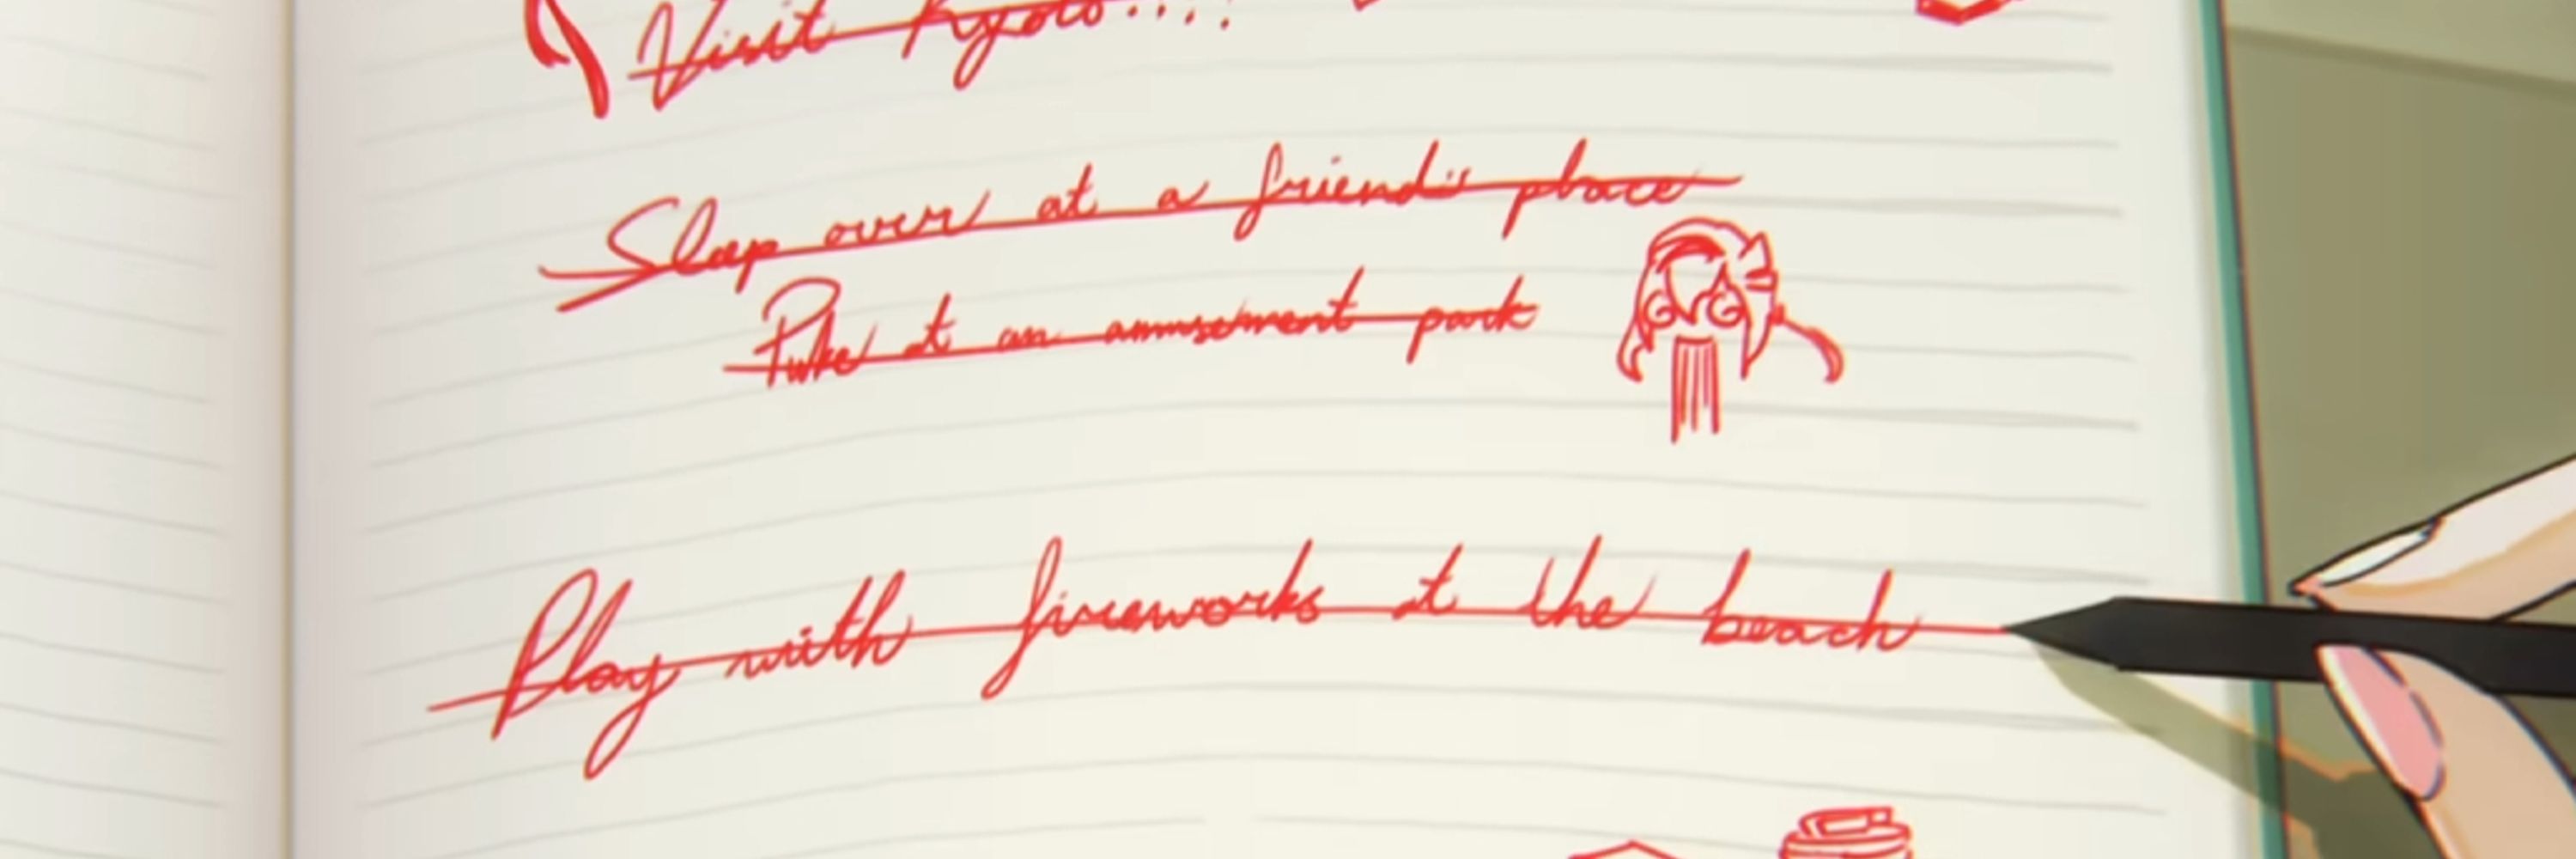 Visit Kyoto....
Sleep over at a friend's place
Puke at an amusement park
Play with fireworks at the beach